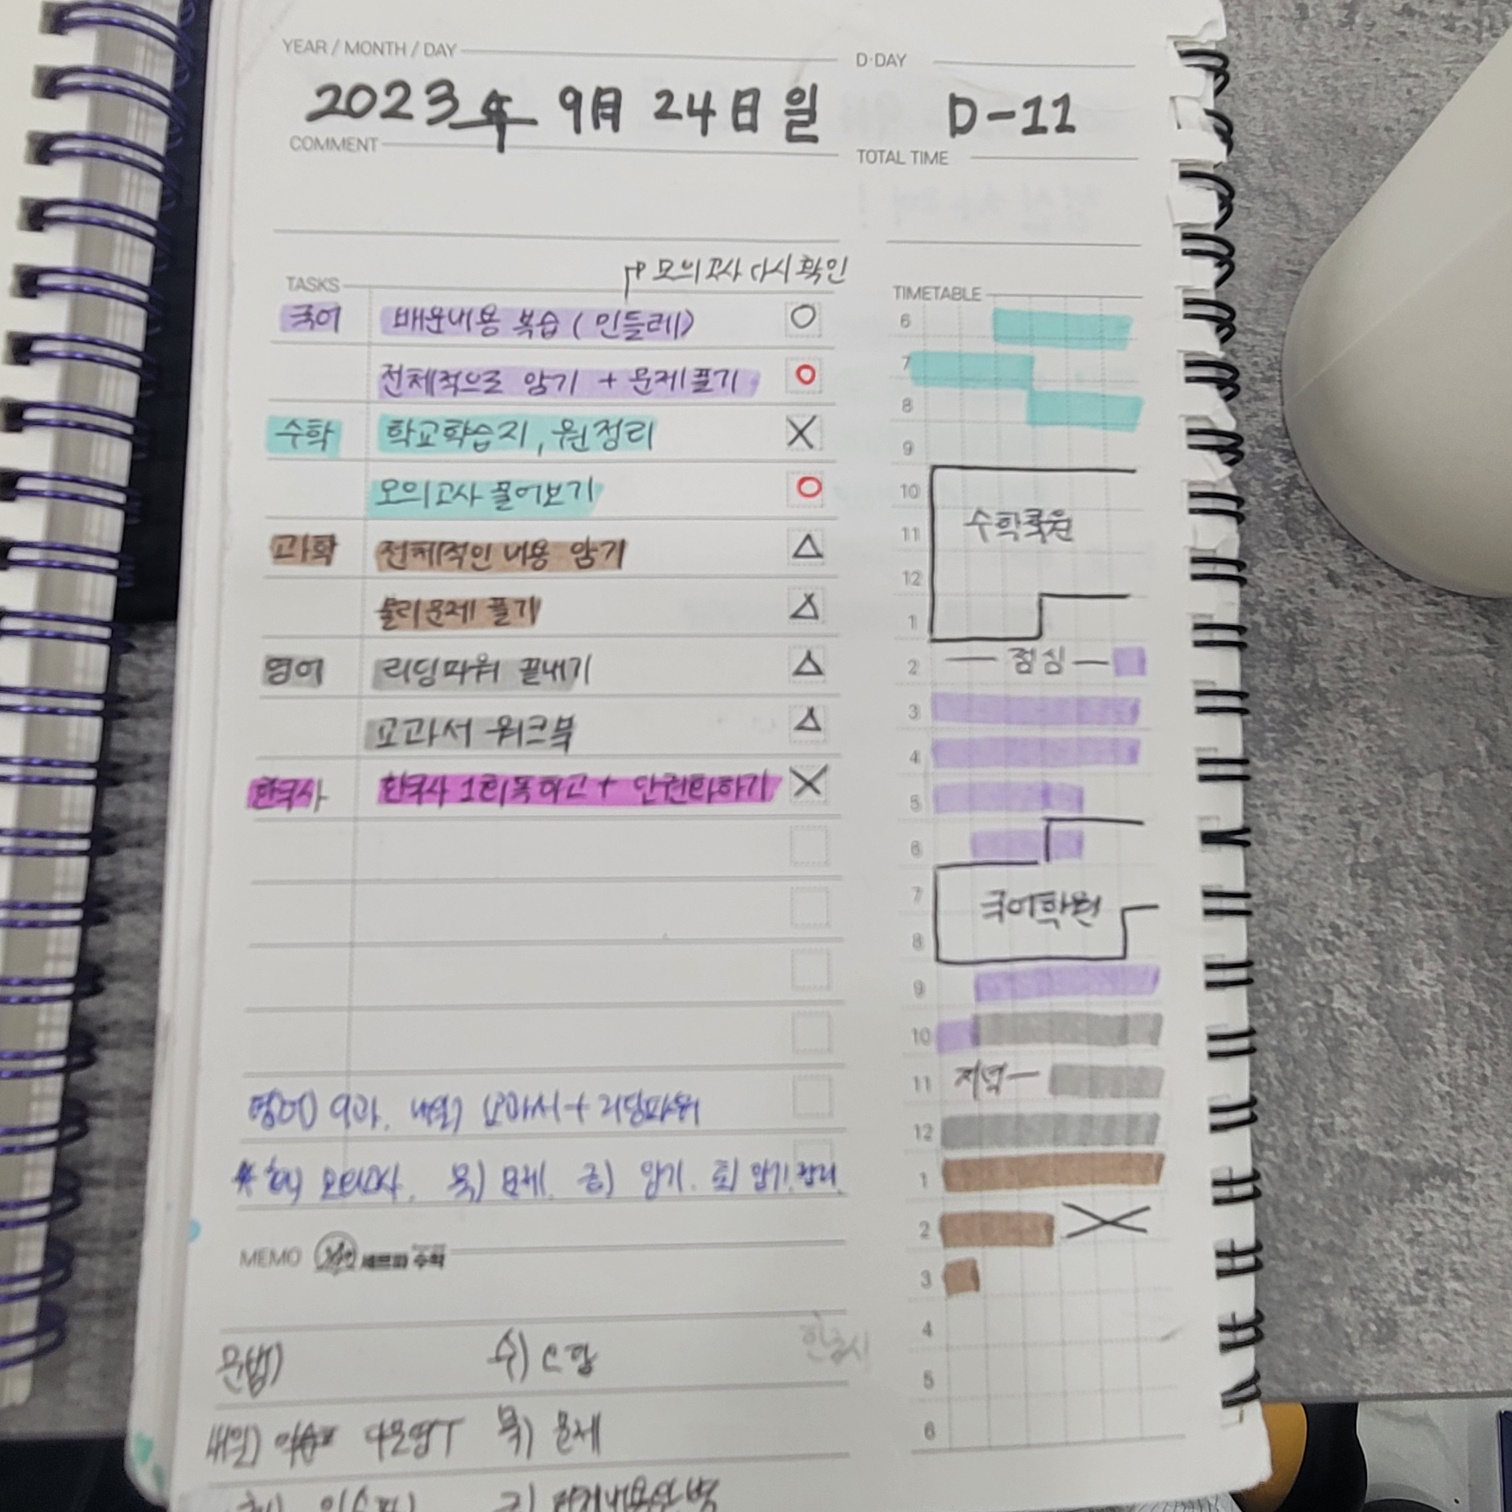 YEAR / MONTH / DAY
D-DAY
2023年 9月 24日 일
D-11
COMMENT
TOTAL TIME
모의고사 다시 확인
TASKS
국어 배운내용 복습 (민들레) O
전체적으로 암기 + 문제풀기 O
수학 학교학습지, 원정리 X
모의고사 풀어보기 O
과학 전체적인 내용 암기 △
물리문제 풀기 △
영어 리딩파워 끝내기 △
교과서 워크북 △
한국사 한국사 1회독하고 + 안권화하기 X
영어) 9과. 내일) 교과서 + 리딩파워
목) 문제. 금) 암기. 토) 암기.
MEMO 세르파 수학
문법)
수)
한국사
내일)
목) 문제
TIMETABLE
6
7
8
9
10
11 수학학원
12
1
2 점심
3
4
5
6
7 국어학원
8
9
10
11 저녁
12
1
2
3
4
5
6